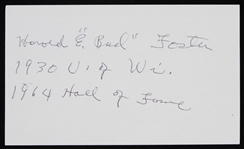 Harold "E. Bud" Foster
1930 U. of Wi.
1964 Hall of Fame